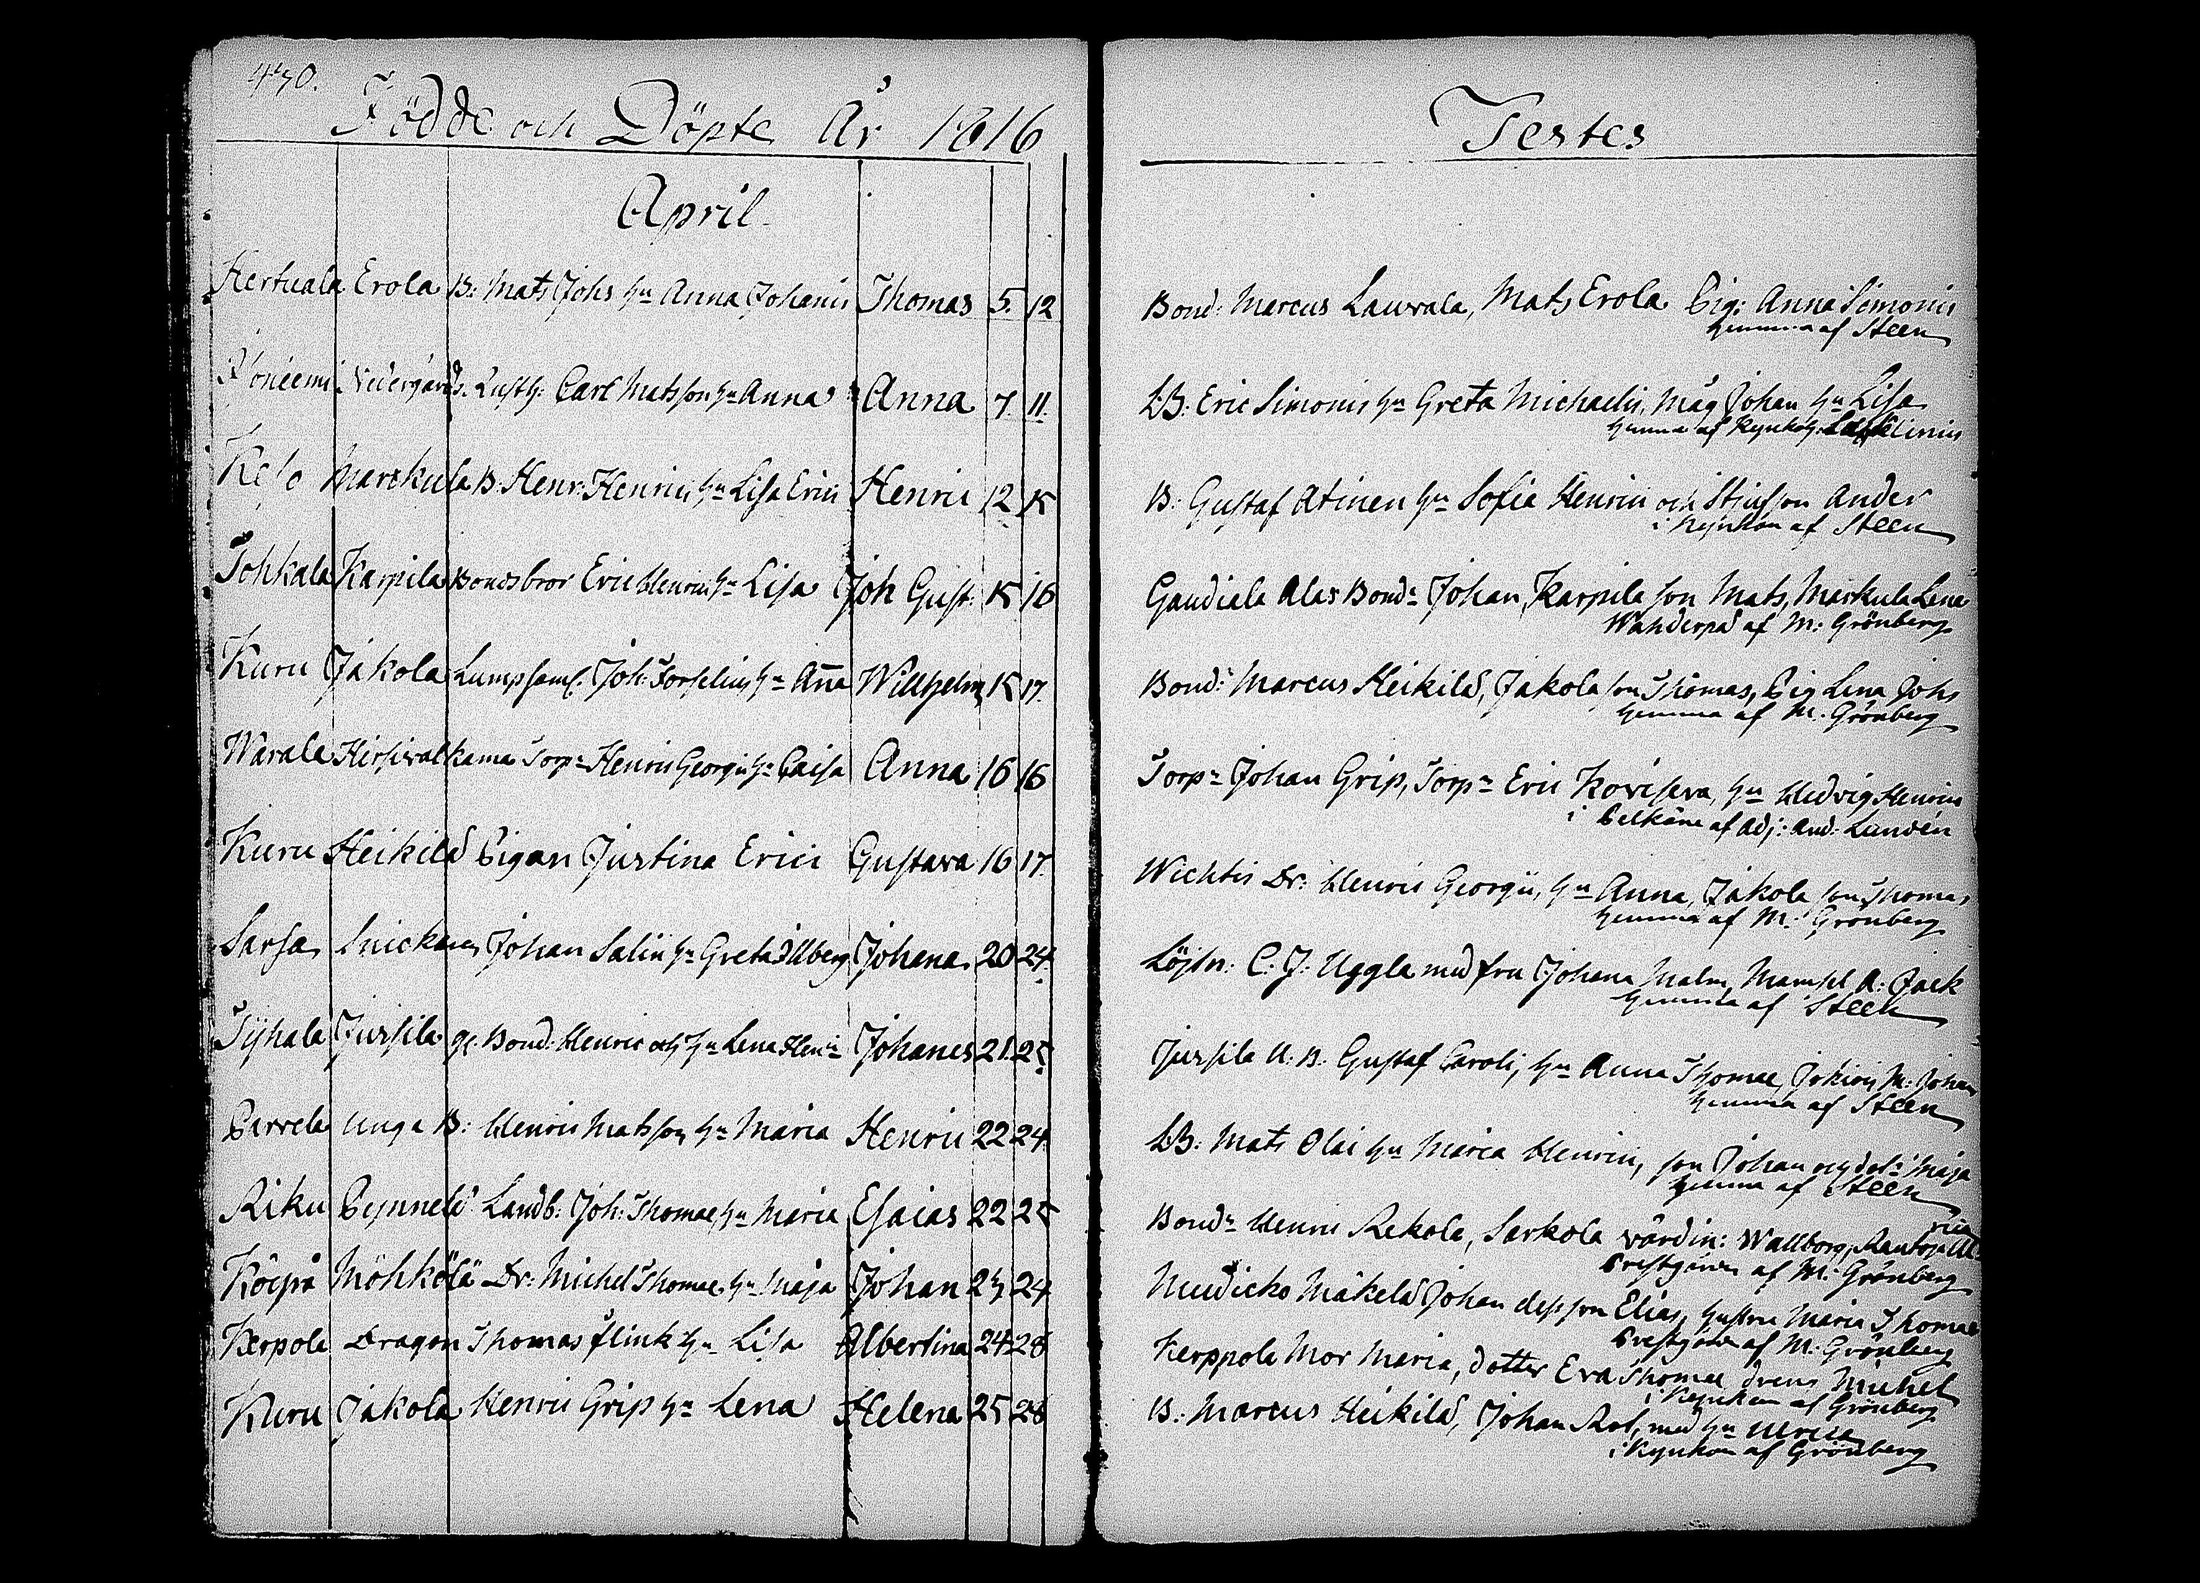 430.
Födde och Döpte År 1816
April.
Hertuala Erola B: Mats Johs hu Anna Johanis Thomas 5. 12
Nedergårds. Carl Matsson hu Anna Anna 7. 11.
Keso Marckula B: Henr: Henrici hu Lisa Erici Henric 12 15
Tohkala Karpila Bondsbror Eric Henrici hu Lisa Joh Gust: 15 16
Kuru Jakola Lumpsaml. Joh: Forselius hu Aña Willhelm 15 17.
Warala Hirsivalkama Torp: Henric Georgii hu Caisa Anna 16 16
Kuru Heikilä Pigan Justina Erici Gustava 16 17.
Sarsa Snickaren Johan Salin hu Greta Johana 20 24.
Tyhala Jussila gl. Bond: Henric och hu Lena Henri: Johanes 21. 25
unga B: Henric Matsson hu Maria Henric 22 24.
Riku Landb: Joh: Thomae, hu Maria Esaias 22 25
Möhkölä Dr: Michel Thomae hu Maja Johan 23 24
Kerpola Dragon Thomas Flink hu Lisa Albertina 24 28
Kuru Jakola Henric Grip hu Lena Helena 25 28
Testes
Bond: Marcus Laurala, Mats Erola Pig: Anna Simonis
hemma af Steen
LB: Eric Simonis hu Greta Michaelis, Måg Johan hu Lisa
hemma af
B: Gustaf Atinen hu Sofia Henrici och Ander
i Kyrkan af Steen
Gaudiala Alas Bond: Johan, Karpila son Mats, Markula Lena
af M: Grönberg
Bond: Marcus Heikilä, Jakola son Thomas, Pig Lena Johs
hemma af M. Grönberg
Torp: Johan Grip, Torp: Eric hu Hedvig Henrici
i Pelkäne af Adj: And: Lundén
Wichtis Dr: Henric Georgii, hu Anna, Jakola son Thomas
hemma af M: Grönberg
Löjtn: C: J: Uggla med fru Johana Malm, Mamsel A: Jack
hemma af Steen
Jussila U: B: Gustaf Caroli, hu Anna Thomae, M: Johan
hemma af Steen
LB: Mats Olai hu Maria Henrici, son Johan och dot: Maja
hemma af Steen
Bond: Henric Rekola, Sarkola värdin: Wallborg,
Prestgården af M: Grönberg
Mäkelä Johan dess son Elias, hustru Maria Thomae
Prestgården af M: Grönberg
Kerppola Mor Maria, dotter Eva Thomae dreng Michel
i Kyrkan af Grönberg
B: Marcus Heikilä, Johan med hu Ulrica
i Kyrkan af Grönberg